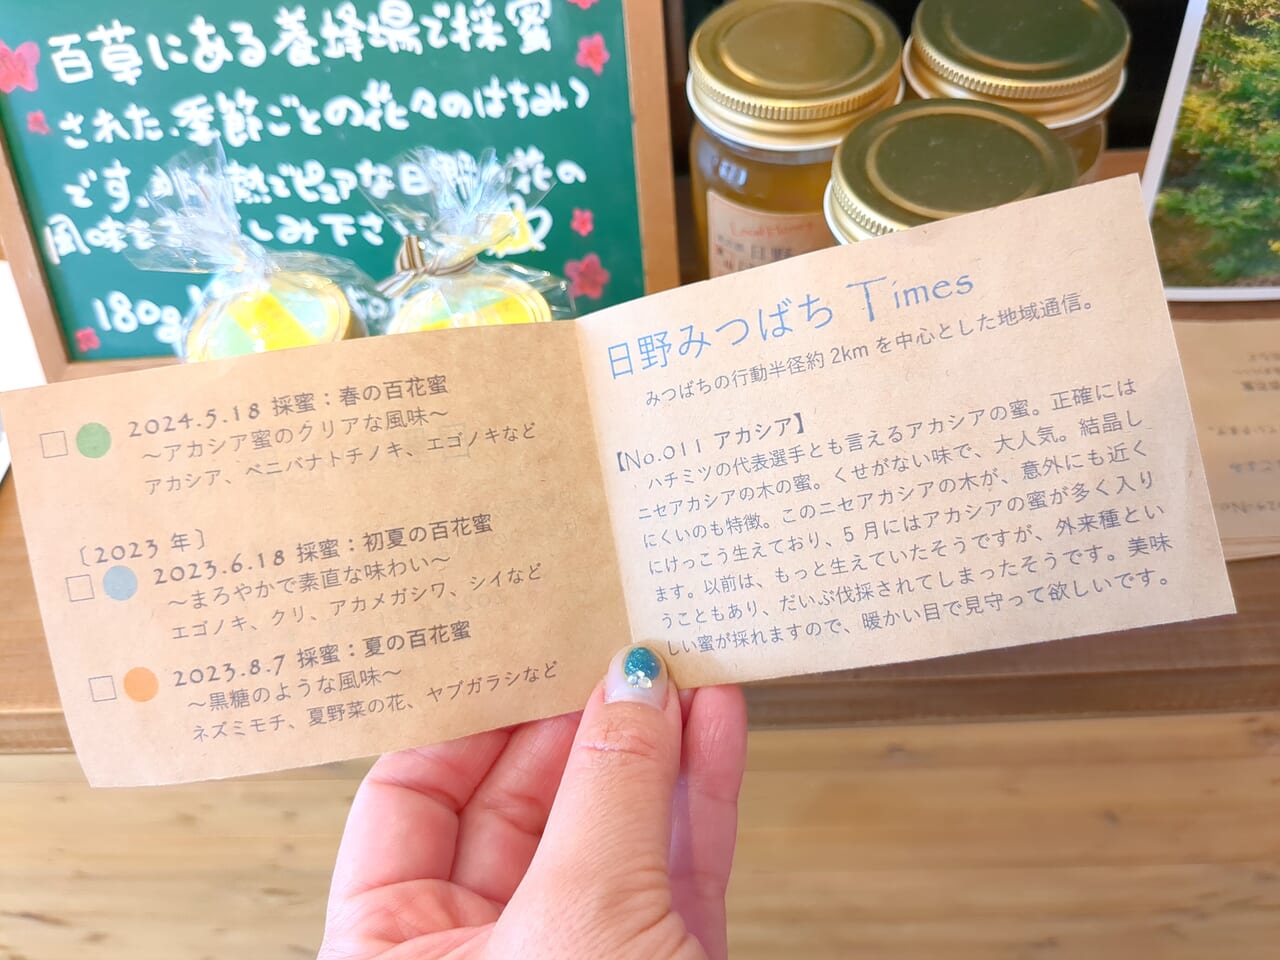 百草にある養蜂場で採蜜
された、季節ごとの花々のはちみつ
です。熱でピュアな日野の花の
風味を しみ下さ
180g
Local Honey
日野
2024.5.18 採蜜：春の百花蜜
～アカシア蜜のクリアな風味～
アカシア、ベニバナトチノキ、エゴノキなど
〔2023 年〕
2023.6.18 採蜜：初夏の百花蜜
～まろやかで素直な味わい～
エゴノキ、クリ、アカメガシワ、シイなど
2023.8.7 採蜜：夏の百花蜜
～黒糖のような風味～
ネズミモチ、夏野菜の花、ヤブガラシなど
日野みつばち Times
みつばちの行動半径約 2km を中心とした地域通信。
【No.011 アカシア】
ハチミツの代表選手とも言えるアカシアの蜜。正確には
ニセアカシアの木の蜜。くせがない味で、大人気。結晶し
にくいのも特徴。このニセアカシアの木が、意外にも近く
にけっこう生えており、5 月にはアカシアの蜜が多く入り
ます。以前は、もっと生えていたそうですが、外来種とい
うこともあり、だいぶ伐採されてしまったそうです。美味
しい蜜が採れますので、暖かい目で見守って欲しいです。